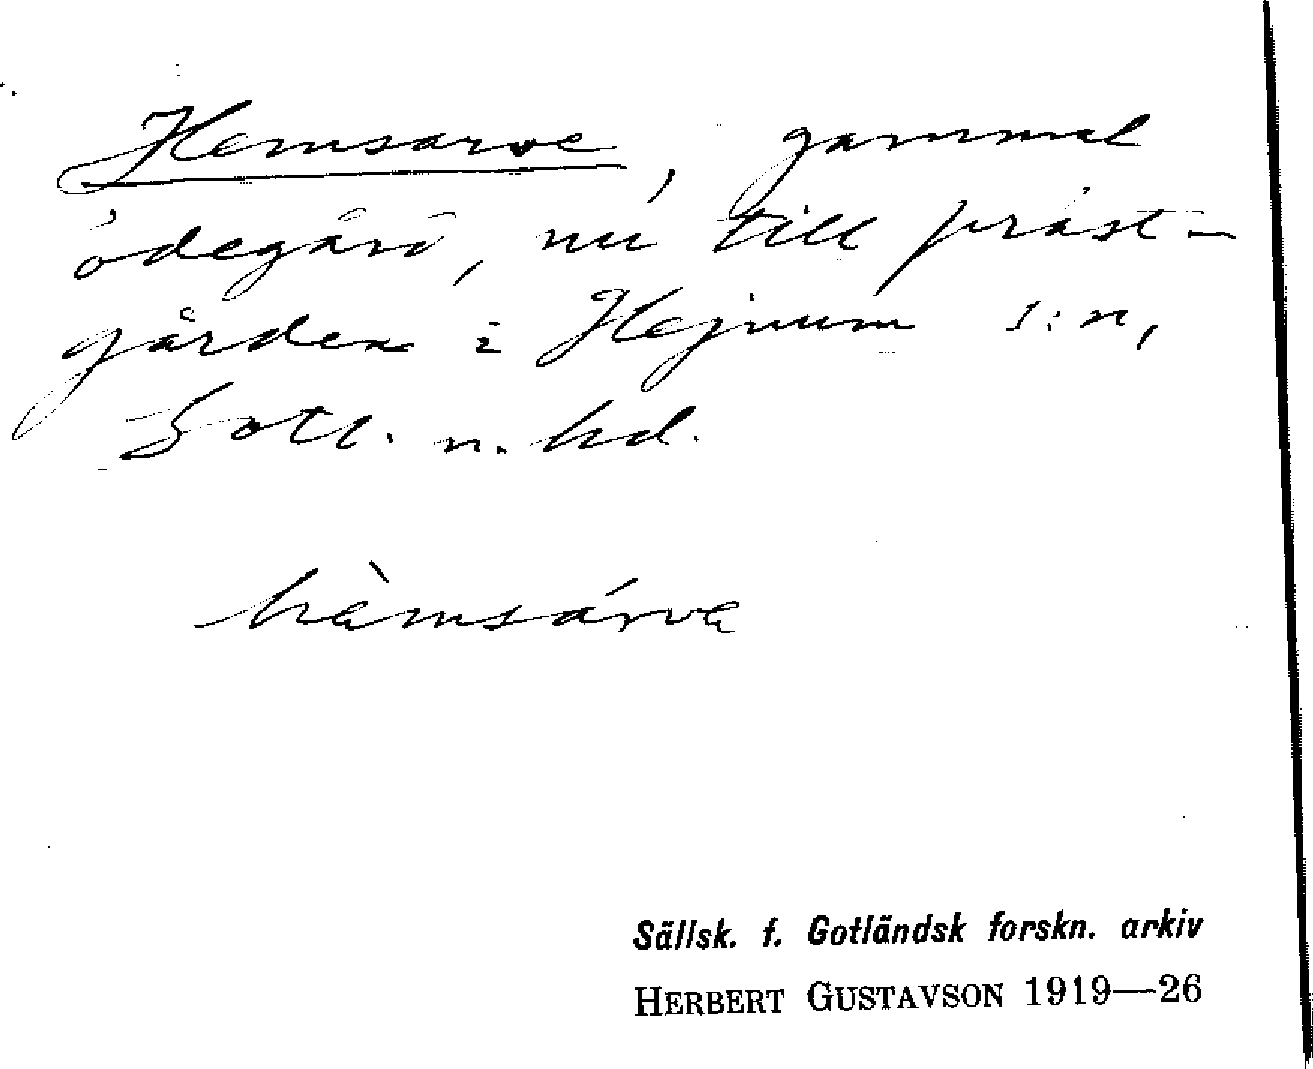 Hemsarve, gammal
ödegård, nu till präst-
gården i Hejnum s:n,
Gotl. n. hd.
hàmsárva
Sällsk. f. Gotländsk forskn. arkiv
HERBERT GUSTAVSON 1919—26